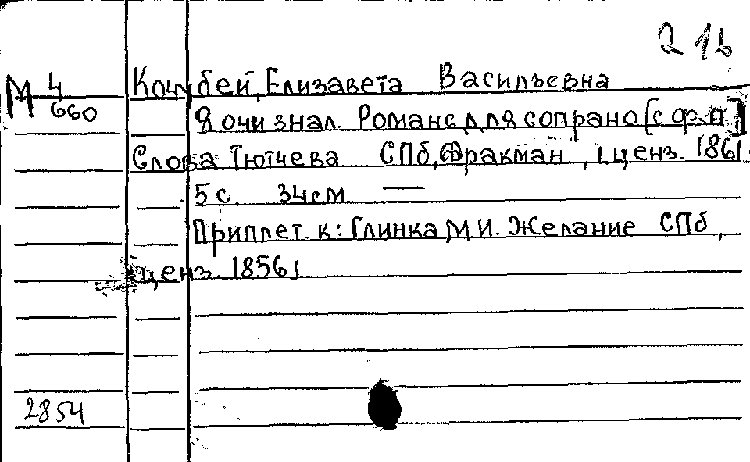 2 1б
М 4 Кочубей, Елизавета Васильевна
660 Я очи знал. Романс для сопрано [с ф-п]
Слова Тютчева СПб, Фракман, [ценз. 1861]
5 с. 34 см —
Приплет. к: Глинка М. И. Желание СПб,
ценз. 1856]
2854